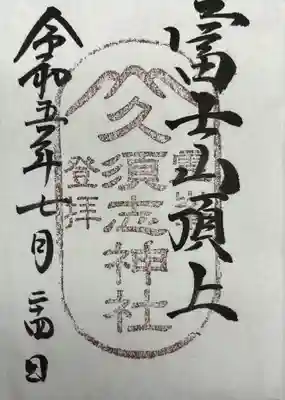 富士山頂上
久須志神社
登拝
令和五年七月二四日